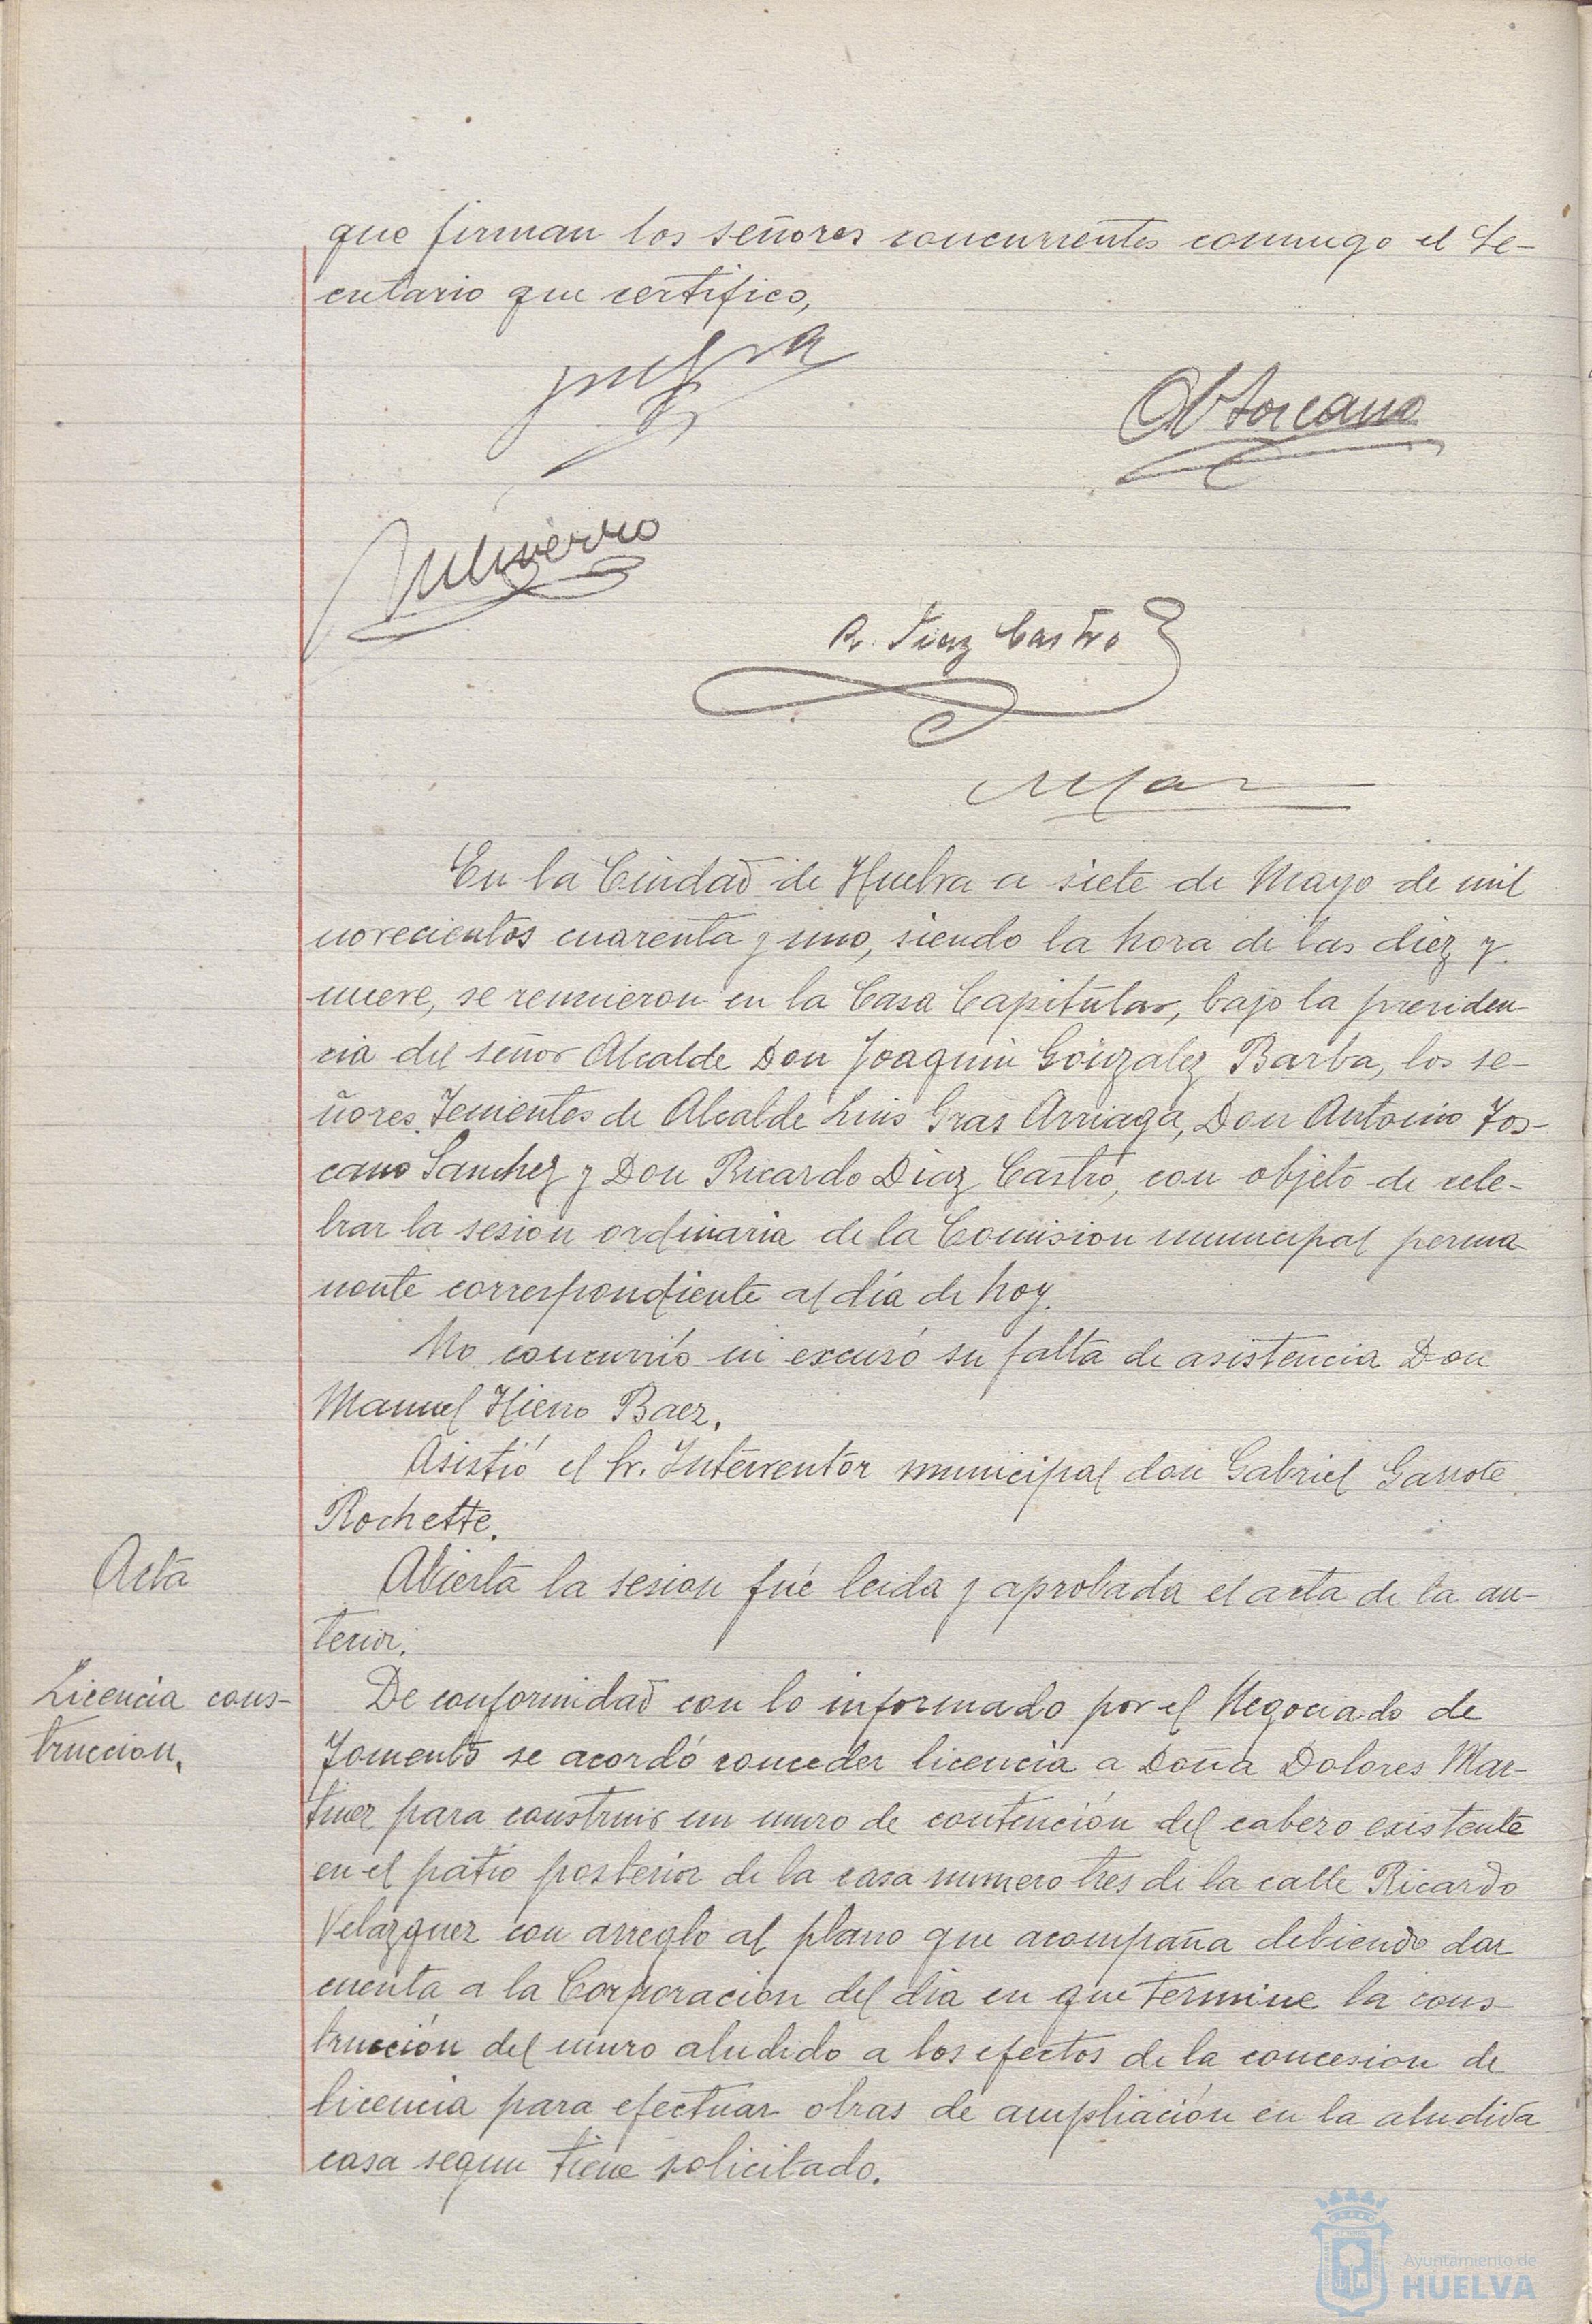 que firman los señores concurrentes conmigo el Se-
cretario que certifico,
A Toscano
R. Diaz Castro
En la Ciudad de Huelva a siete de Mayo de mil
novecientos cuarenta y uno, siendo la hora de las diez y
nueve, se reunieron en la Casa Capitular, bajo la presiden-
cia del señor Alcalde Don Joaquin Gonzalez Barba, los se-
ñores Tenientes de Alcalde Luis Gras Arriaga, Don Antonio Tos-
cano Sanchez y Don Ricardo Diaz Castro, con objeto de cele-
brar la sesion ordinaria de la Comision municipal perma-
nente correspondiente al día de hoy.
No concurrió ni excusó su falta de asistencia Don
Manuel Hierro Baez.
Asistió el Sr. Interventor municipal don Gabriel Garrote
Rochette.
Acta
Abierta la sesion fué leida y aprobada el acta de la an-
terior.
Licencia cons-
truccion.
De conformidad con lo informado por el Negociado de
Fomento se acordó conceder licencia a Doña Dolores Mar-
tinez para construir un muro de contención del cabezo existente
en el patio posterior de la casa numero tres de la calle Ricardo
Velazquez con arreglo al plano que acompaña debiendo dar
cuenta a la Corporacion del dia en que termine la cons-
trucción del muro aludido a los efectos de la concesion de
licencia para efectuar obras de ampliación en la aludida
casa segun tiene solicitado.
Ayuntamiento de
HUELVA